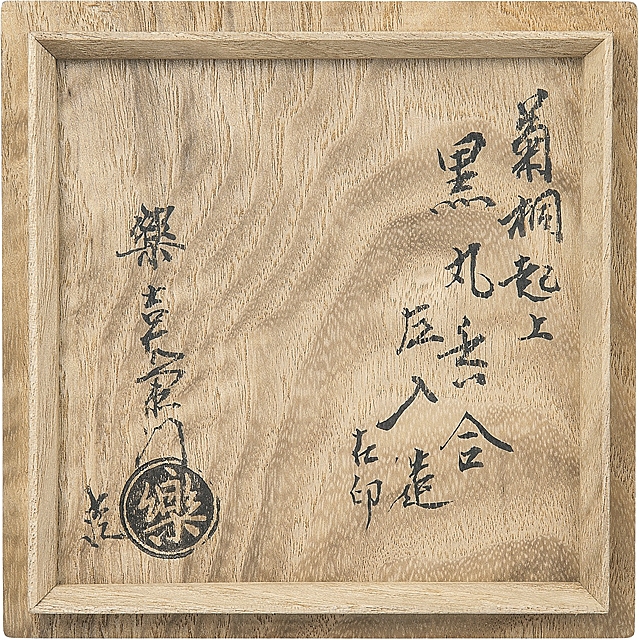 菊桐起上
黒丸香合
左入造
在印
樂吉左衛門
樂